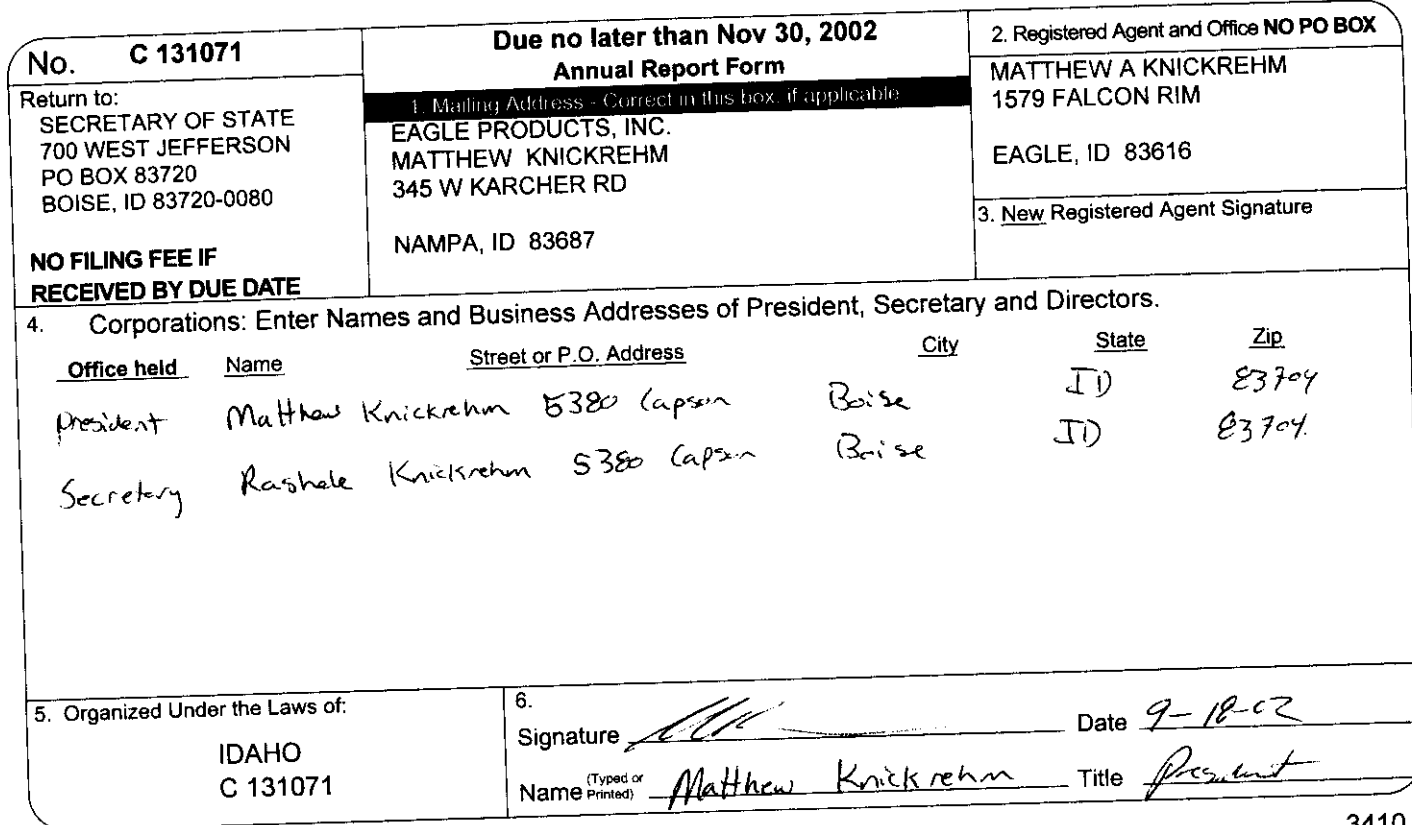 No. C 131071
Return to:
SECRETARY OF STATE
700 WEST JEFFERSON
PO BOX 83720
BOISE, ID 83720-0080
NO FILING FEE IF
RECEIVED BY DUE DATE
Due no later than Nov 30, 2002
Annual Report Form
1. Mailing Address - Correct in this box, if applicable
EAGLE PRODUCTS, INC.
MATTHEW KNICKREHM
345 W KARCHER RD
NAMPA, ID 83687
2. Registered Agent and Office NO PO BOX
MATTHEW A KNICKREHM
1579 FALCON RIM
EAGLE, ID 83616
3. New Registered Agent Signature
4. Corporations: Enter Names and Business Addresses of President, Secretary and Directors.
Office held Name Street or P.O. Address City State Zip
President Matthew Knickrehm 5380 Capson Boise ID 83704
Secretary Rashele Knickrehm 5380 Capson Boise ID 83704
5. Organized Under the Laws of:
IDAHO
C 131071
6.
Signature Date 9-18-02
Name (Typed or Printed) Matthew Knickrehm Title President
3410